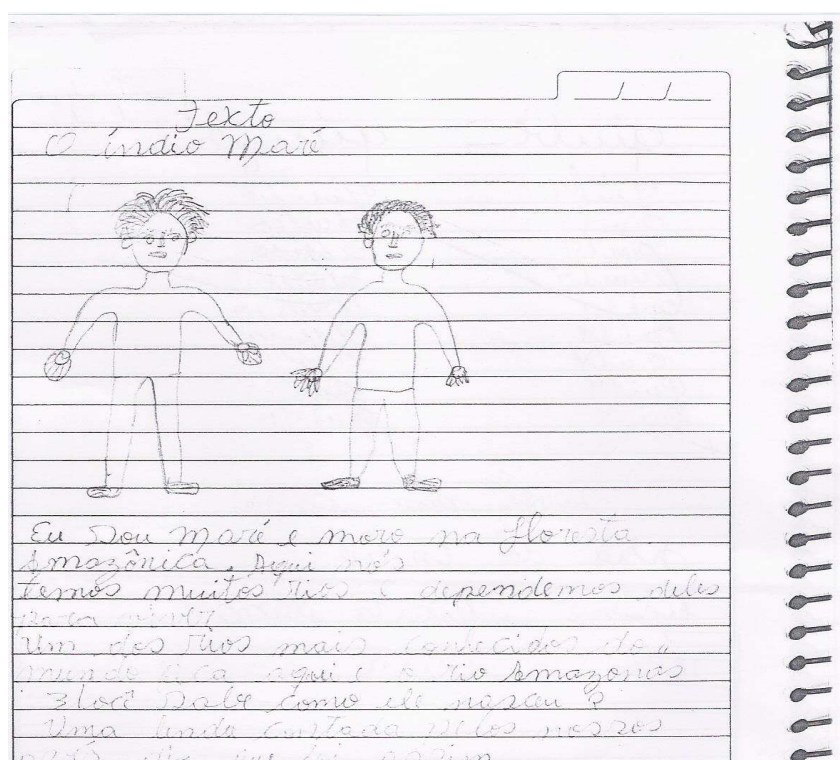 Texto
O índio Maré
Eu sou Maré e moro na floresta
Amazônica. Aqui nós
temos muitos rios e dependemos deles
para viver
Um dos rios mais conhecidos do
mundo fica aqui é o rio Amazonas
Você sabe como ele nasceu?
Uma lenda contada pelos nossos
avós diz que foi assim